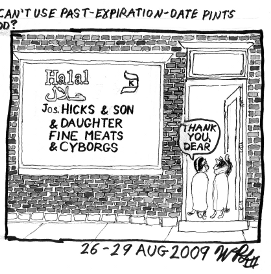 CAN'T USE PAST-EXPIRATION-DATE PINTS
OD?
Halal
حلال
K
Jos. HICKS & SON
& DAUGHTER
FINE MEATS
& CYBORGS
THANK
YOU,
DEAR
26-29 AUG 2009